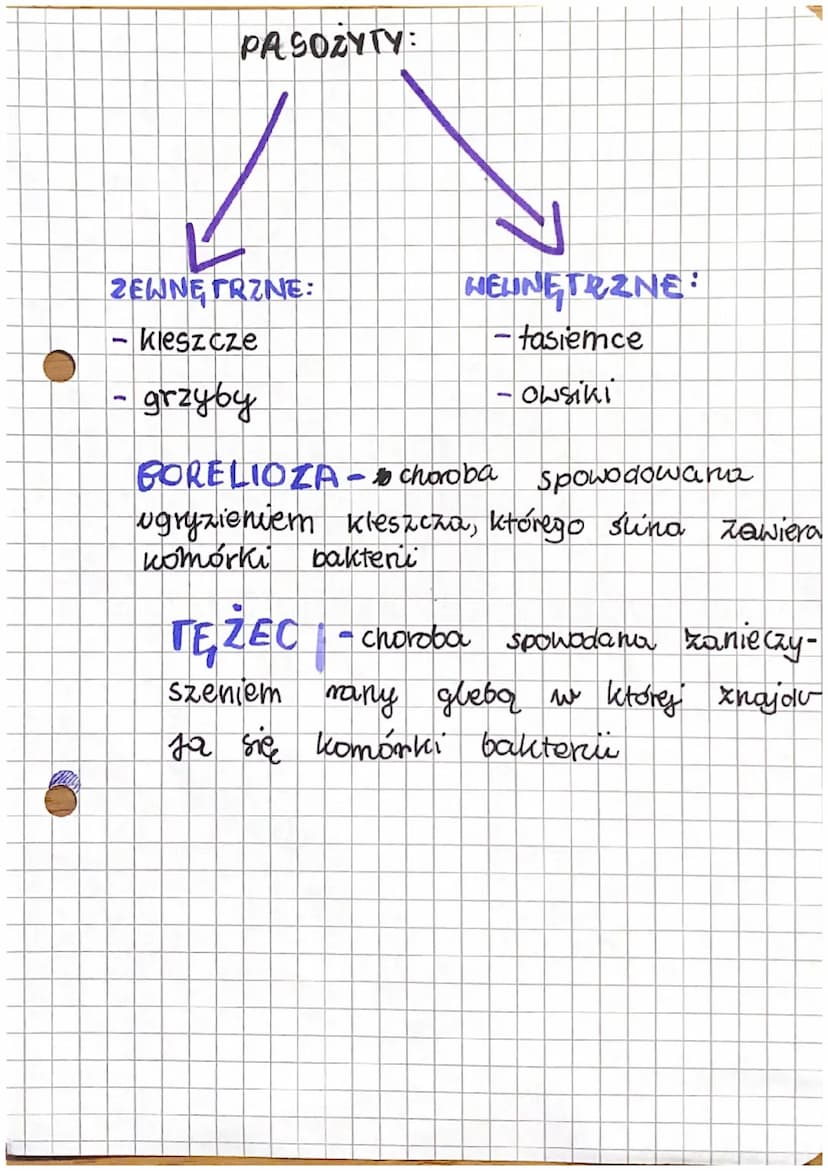 PASOŻYTY:
ZEWNĘTRZNE:
- kleszcze
- grzyby
WEWNĘTRZNE:
- tasiemce
- owsiki
BORELIOZA - choroba spowodowana
ugryzieniem kleszcza, którego ślina zawiera
komórki bakterii
TĘŻEC - choroba spowodana zanieczy-
szeniem rany glebą w której znajdu
ja się komórki bakterii